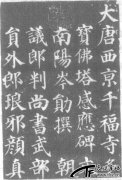 大唐西京千福寺
寶佛塔感應碑文
南陽岑勛撰 朝
議郎判尚書武部
員外郎琅邪顏真